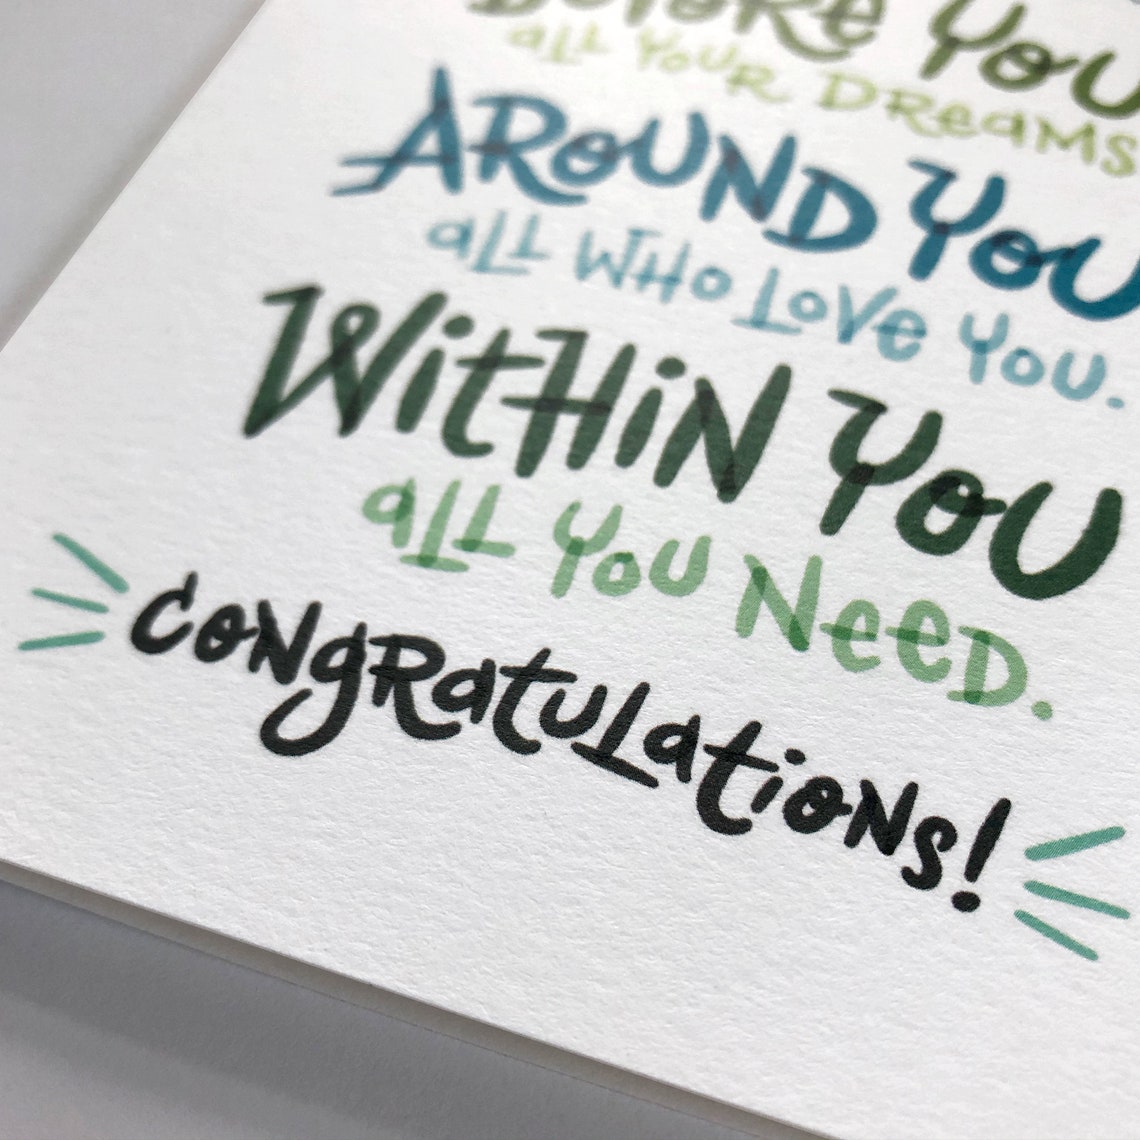 BEFORE YOU
aLL YOUR DReaMS
AROUND YOU
aLL WHO LOVe YOU.
WitHiN YOU
aLL YOU NeeD.
CONgRatuLatiONS!